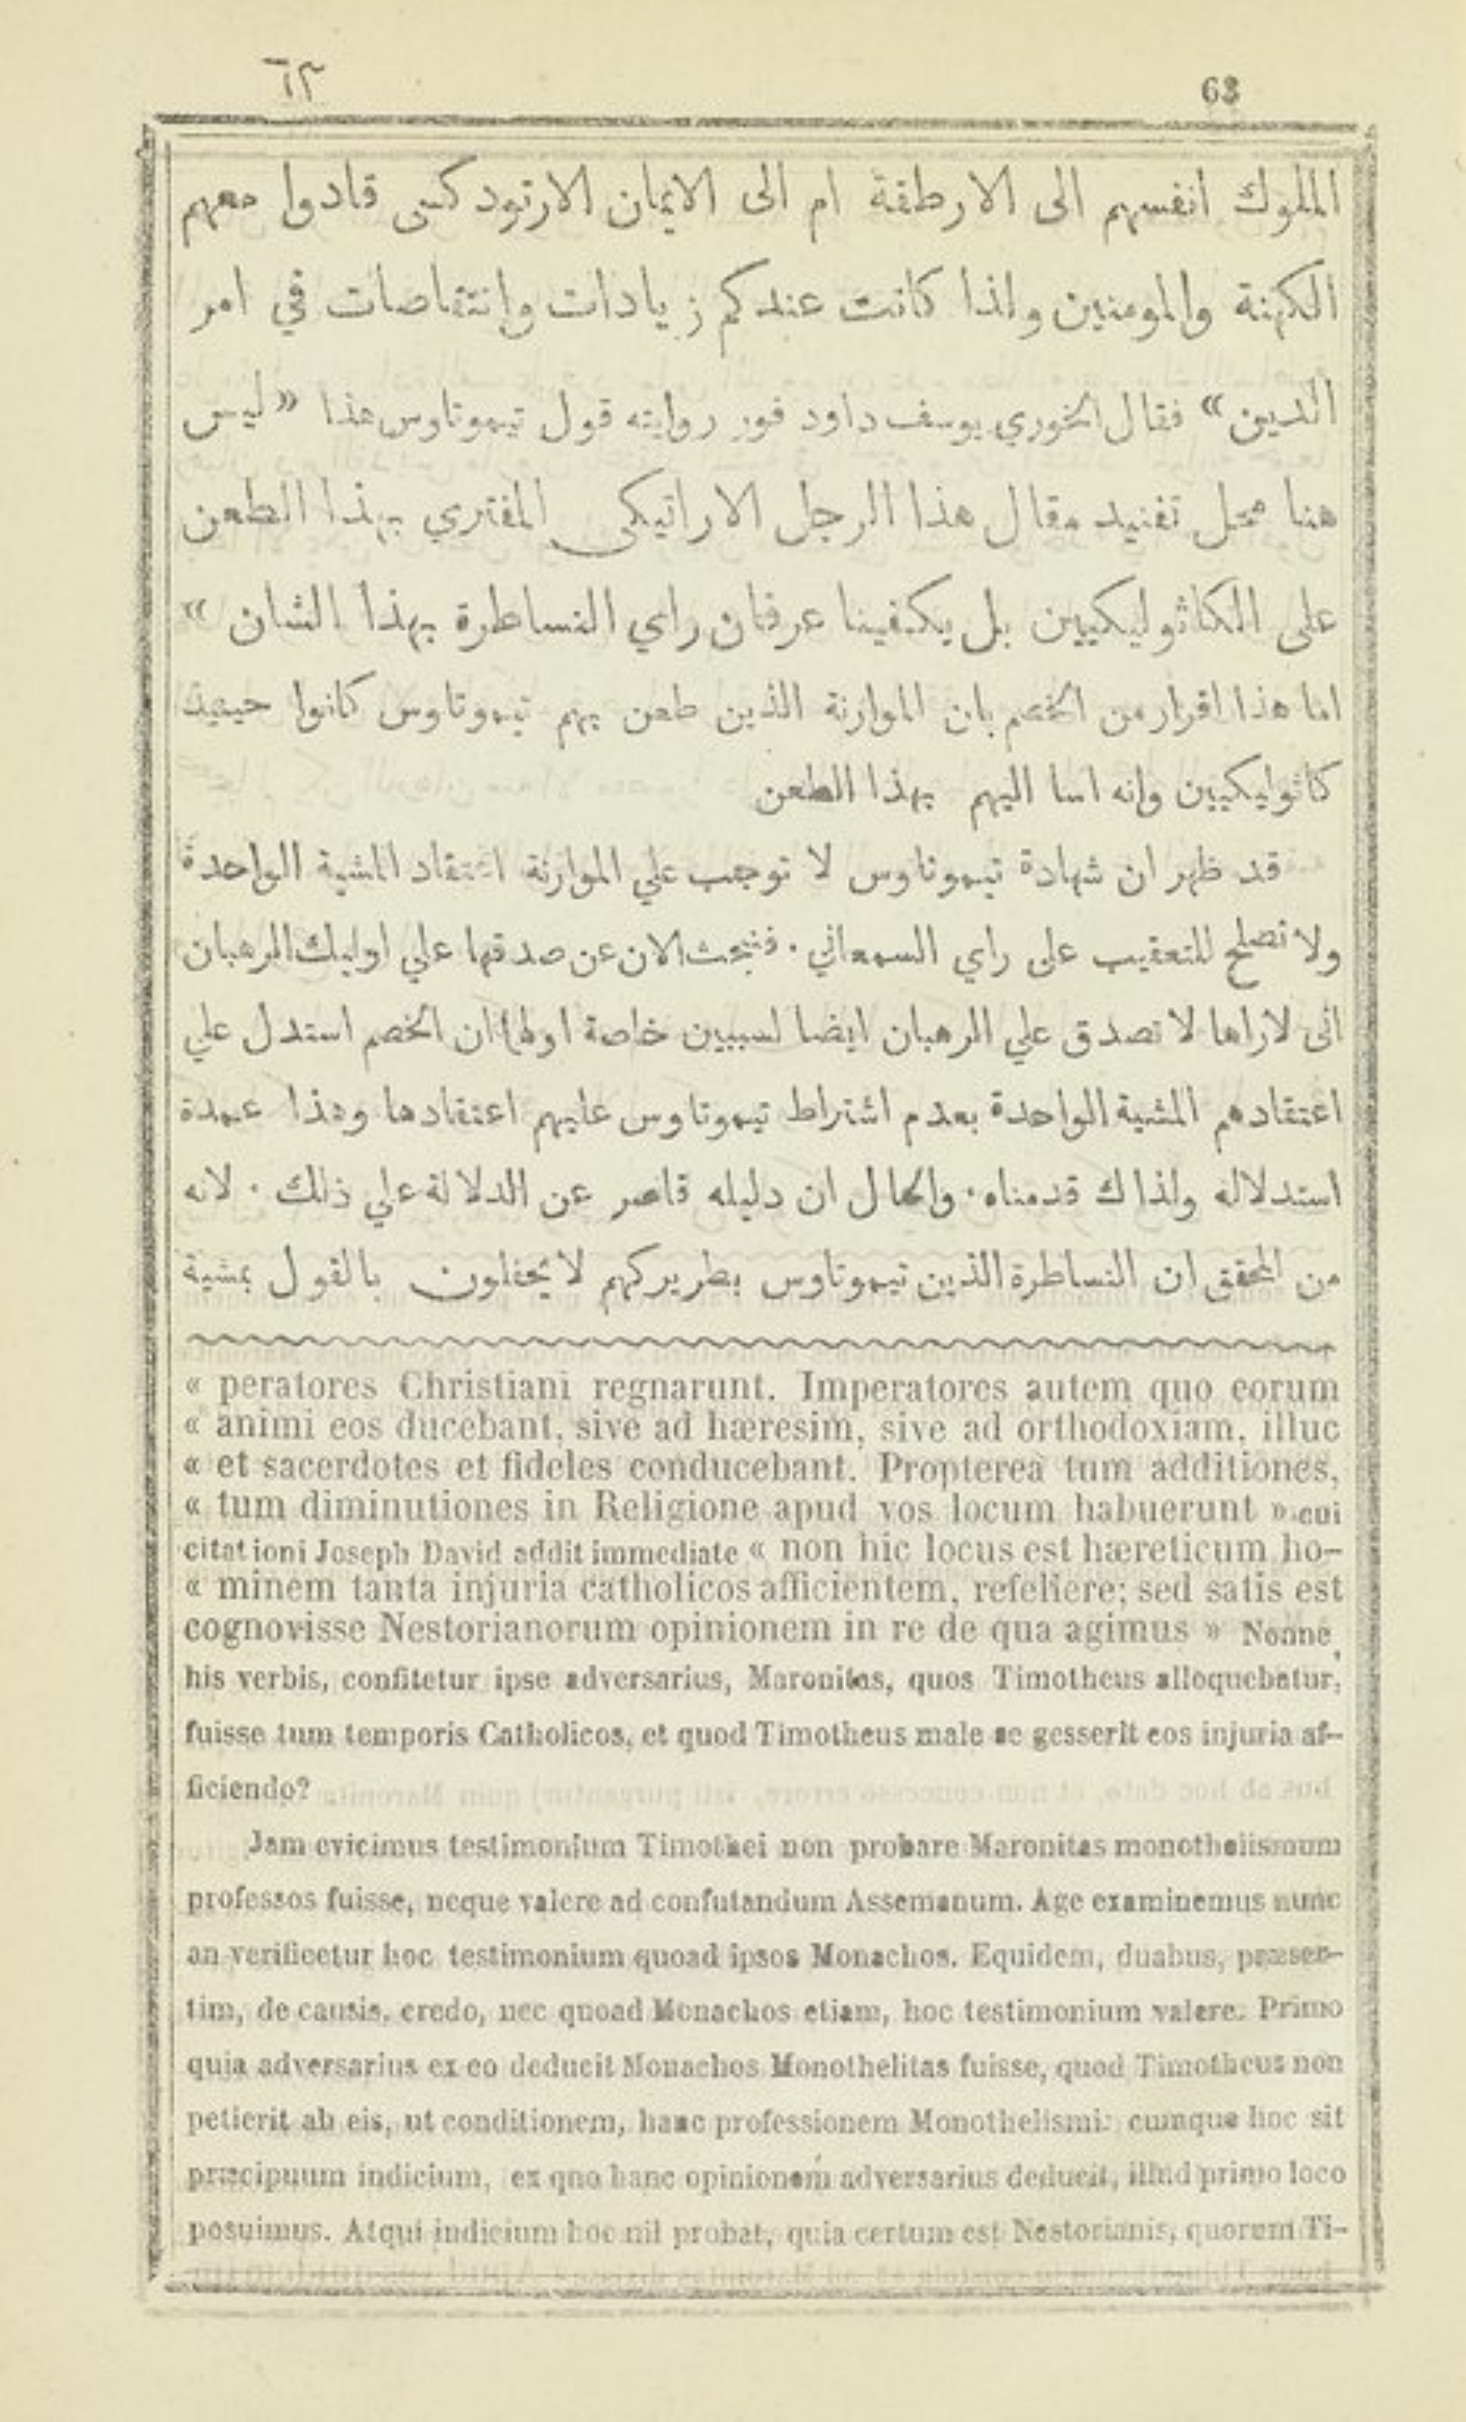 ٦٣ 63
الملوك انفسهم الى الارطقة ام الى الايمان الارتودكسى قادوا معهم
الكهنة والمومنين ولذا كانت عندكم زيادات وانتقاصات في امر
الدين» فقال الخوري يوسف داود فور روايته قول تيموتاوس هذا «ليس
هنا محل تفنيد مقال هذا الرجل الاراتيكى المفتري بهذا الطعن
على الكاثوليكيين بل يكفينا عرفان راي النساطرة بهذا الشان »
اما هذا اقرار من الخصم بان الموارنة الذين طعن بهم تيموتاوس كانوا حينيذ
كاثوليكيين وانه اسا اليهم بهذا الطعن
قد ظهر ان شهادة تيموتاوس لا توجب علي الموارنة اعتقاد المشية الواحدة
ولا تصلح للتعقيب على راي السمعاني . فنبحث الان عن صدقها علي اوليك الرهبان
انى لاراها لا تصدق علي الرهبان ايضا لسببين خاصة اولها ان الخصم استدل علي
اعتقادهم المشية الواحدة بعدم اشتراط تيموتاوس عليهم اعتقادها وهذا عمدة
استدلاله ولذاك قدمناه. والحال ان دليله قاصر عن الدلالة علي ذلك . لانه
من المحقق ان النساطرة الذين تيموتاوس بطريركهم لا يحفلون بالقول بمشية
« peratores Christiani regnarunt. Imperatores autem quo eorum
« animi eos ducebant, sive ad hæresim, sive ad orthodoxiam, illuc
« et sacerdotes et fideles conducebant. Propterea tum additiones,
« tum diminutiones in Religione apud vos locum habuerunt » cui
citationi Joseph David addit immediate « non hic locus est hæreticum ho-
« minem tanta injuria catholicos afficientem, refellere; sed satis est
cognovisse Nestorianorum opinionem in re de qua agimus » Nonne
his verbis, confitetur ipse adversarius, Maronitas, quos Timotheus alloquebatur,
fuisse tum temporis Catholicos, et quod Timotheus male se gesserit eos injuria af-
ficiendo?
Jam evicimus testimonium Timothei non probare Maronitas monothelismum
professos fuisse, neque valere ad confutandum Assemanum. Age examinemus nunc
an verificetur hoc testimonium quoad ipsos Monachos. Equidem, duabus, præser-
tim, de causis, credo, nec quoad Monachos etiam, hoc testimonium valere. Primo
quia adversarius ex eo deducit Monachos Monothelitas fuisse, quod Timotheus non
petierit ab eis, ut conditionem, hanc professionem Monothelismi: cumque hoc sit
præcipuum indicium, ex quo hanc opinionem adversarius deducit, illud primo loco
posuimus. Atqui indicium hoc nil probat, quia certum est Nestorianis, quorum Ti-